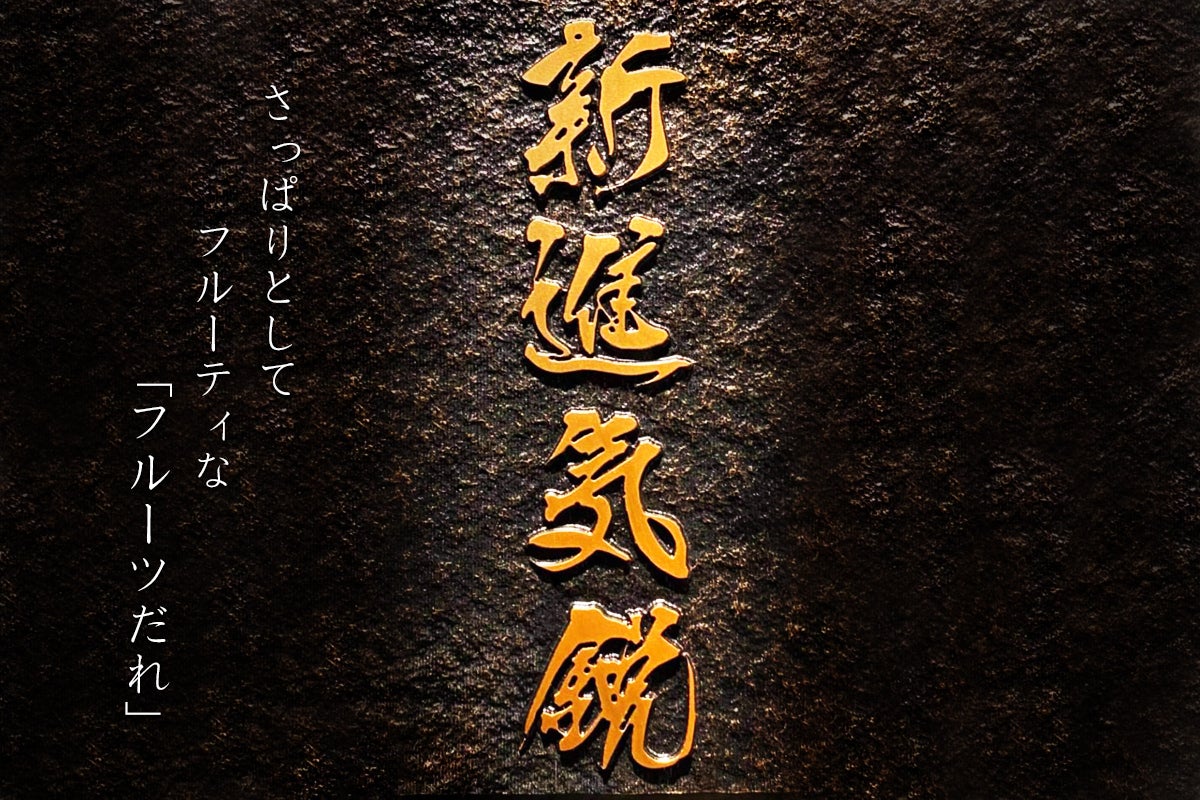 新進気鋭
さっぱりとして
フルーティな
「フルーツだれ」